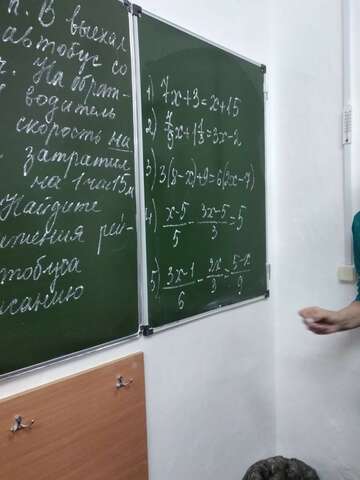 п. В выехал
автобус со
ч. На обрат-
водитель
скорость на
затратил
на 1 ч 15 м
Найдите
жения рей-
тобуса
писанию
1) 7x+3=x+15
2) x+1=3x-2
3) 3(2-x)+9=6(2x-7)
4) x-5/5 - 3x-5/3 = 5
5) 2x-1/6 - 2x/3 = 5-x/9